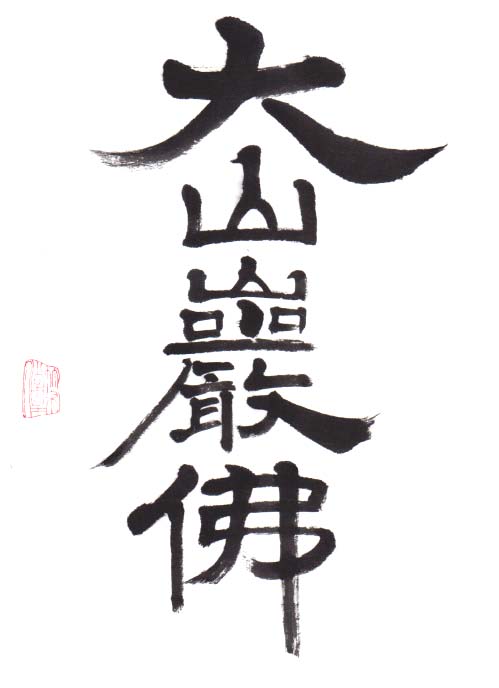 大山巖佛